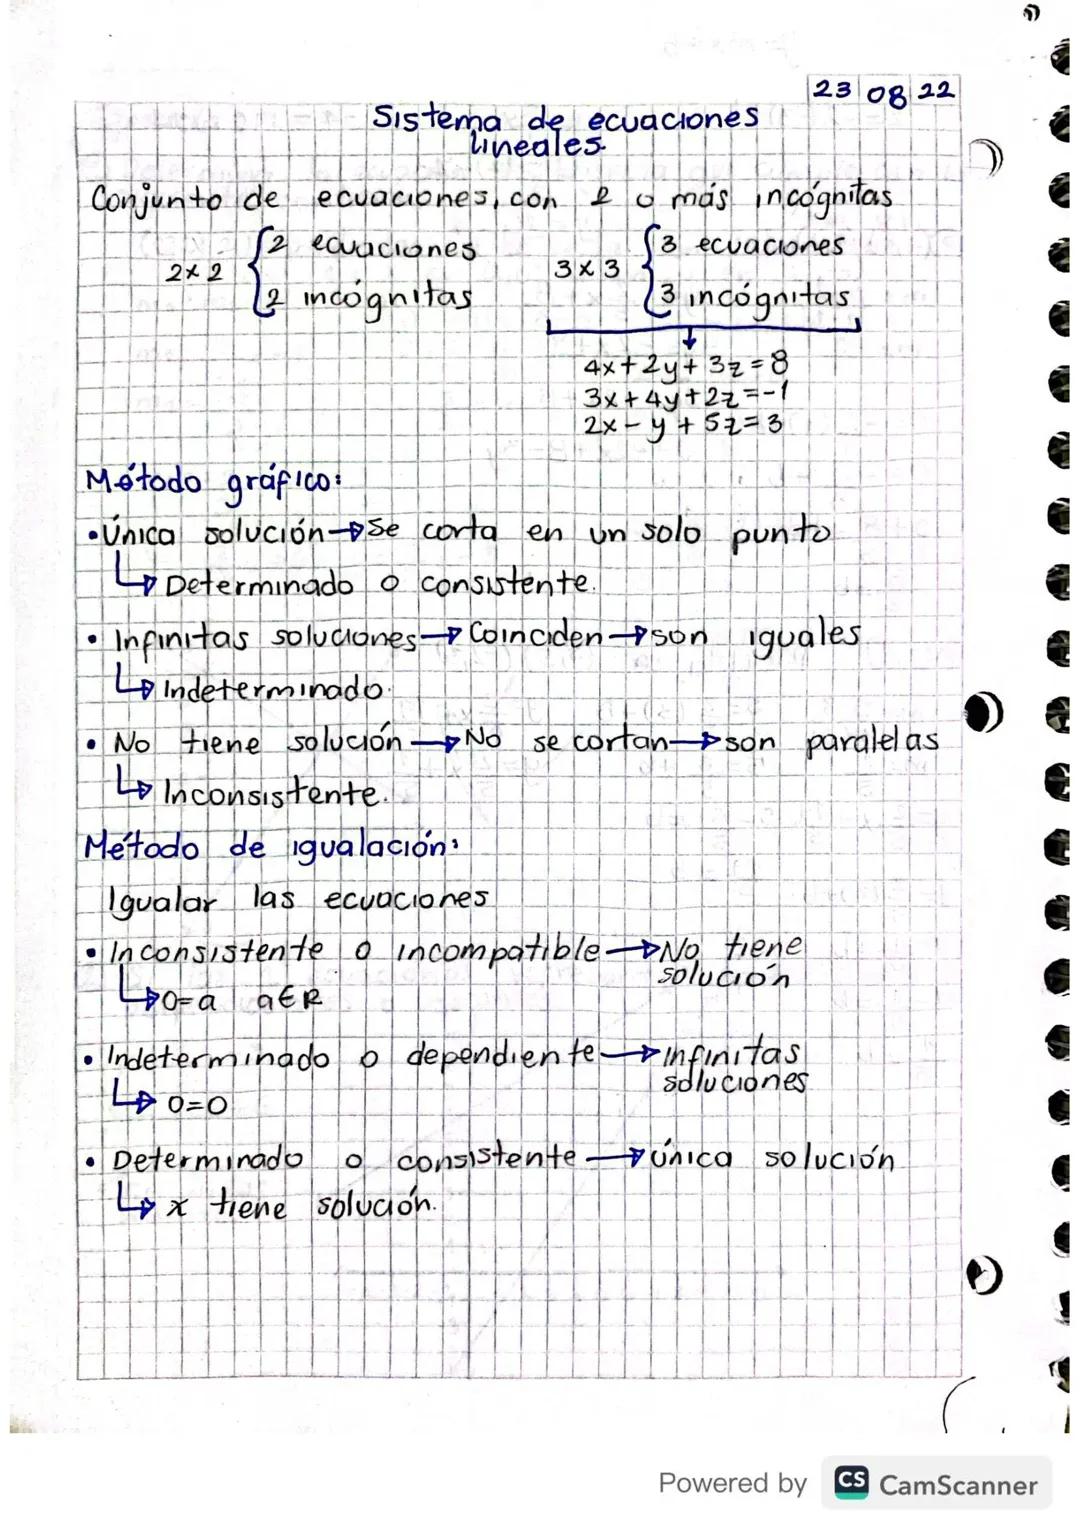 23 08 22
Sistema de ecuaciones
lineales.
Conjunto de ecuaciones, con 2 o más incógnitas
2x2 { 2 ecuaciones
2 incógnitas
3x3 { 3 ecuaciones
3 incógnitas
4x+2y+3z=8
3x+4y+2z=-1
2x-y+5z=3
Método gráfico:
• Única solución → Se corta en un solo punto
↳ Determinado o consistente.
• Infinitas soluciones → Coinciden → son iguales
↳ Indeterminado.
• No tiene solución → No se cortan → son paralelas
↳ Inconsistente.
Método de igualación:
Igualar las ecuaciones
• Inconsistente o incompatible → No tiene
solución
↳ 0=a a∈R
• Indeterminado o dependiente → infinitas
soluciones
↳ 0=0
• Determinado o consistente → única solución
↳ x tiene solución.
Powered by CS CamScanner